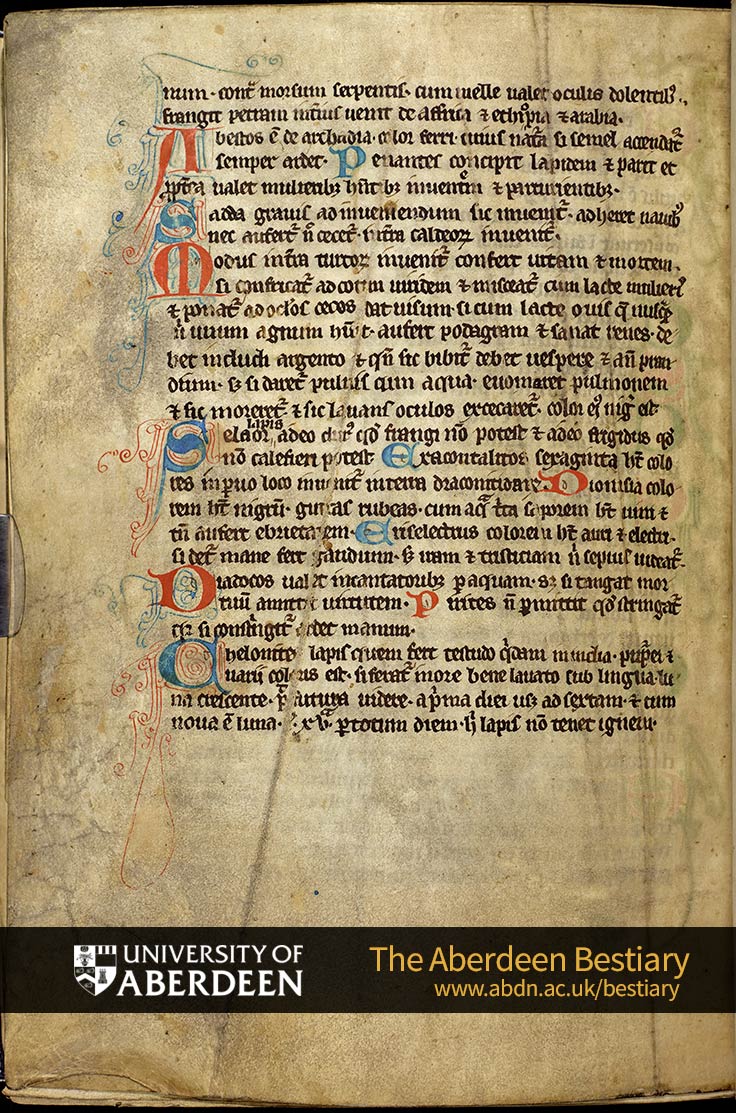 num. cont̄ morsum serpentis. cum melle ualet oculis dolentibꝰ.
frangit petram int̾ius uenit de affrica ⁊ ethyopia ⁊ arabia.
Abestos ē de archadia. color ferri. cuius nat̾a si semel accendat̾
semper ardet. Penantes concipit lapidem ⁊ parit et
ualet mulieribꝫ ⁊ parturientibꝫ.
Sadda grauis ad inueniendum sic inuenit̾. adheret nauibꝰ
nec aufert̾ n̄ infra caldeoꝝ inuenit̾.
Modus infra turcoꝝ inuenit̾ confert uitam ⁊ mortem.
si confricat̾ ad cotim uiridem ⁊ misceat̾ cum lacte mulieris
⁊ ponat̾ ad oclos cecos dat uisum. si cum lacte ouis
unum agnum. aufert podagram ⁊ sanat renes. de
bet includi argento ⁊ qn̄ sic bibit̾ debet uespere ⁊ añ
dium. sꝫ si daret̾ cum aqua. euomeret pulmonem
⁊ sic moreret̾ ⁊ sic lauans oculos excecaret̾. color eiꝰ nig̾ est
lapis
adeo durꝰ qd̄ frangi nō potest ⁊ adeo frigidus qd̄
nō calefieri potest Exacontalitos sexaginta ht̄ colo
res in paruo loco inuenit̾ in terra Dionisia colo
rem ht̄ nigrū. guttas rubeas. cum aq̄ t̾ita saporem ht̄ uini ⁊
tn̄ aufert ebrietatem. Eriselectrus colorem ht̄ auri ⁊ electri.
mane fert gaudium. ⁊ tristiciam n̄ sepius uideat̾.
Diadocos ualet incantatoribꝫ ꝑ aquam. sꝫ si tangat mor
tuū amittit uirtutem. Pirites n̄ ꝑmittit qd̄ stringat̾
qꝛ si constringit̾ ardet manum.
Chelonite lapis quem fert testudo q̾dam in india. ⁊
uarii coloris est. si ferat̾ more bene lauato sub lingua. lu
na crescente. futura uidere. a p̾ma diei usꝫ ad sextam. ⁊ cum
noua ē luna. xv. ꝑ totum diem. h̄ lapis nō tenet ignem.
UNIVERSITY OF
ABERDEEN
The Aberdeen Bestiary
www.abdn.ac.uk/bestiary